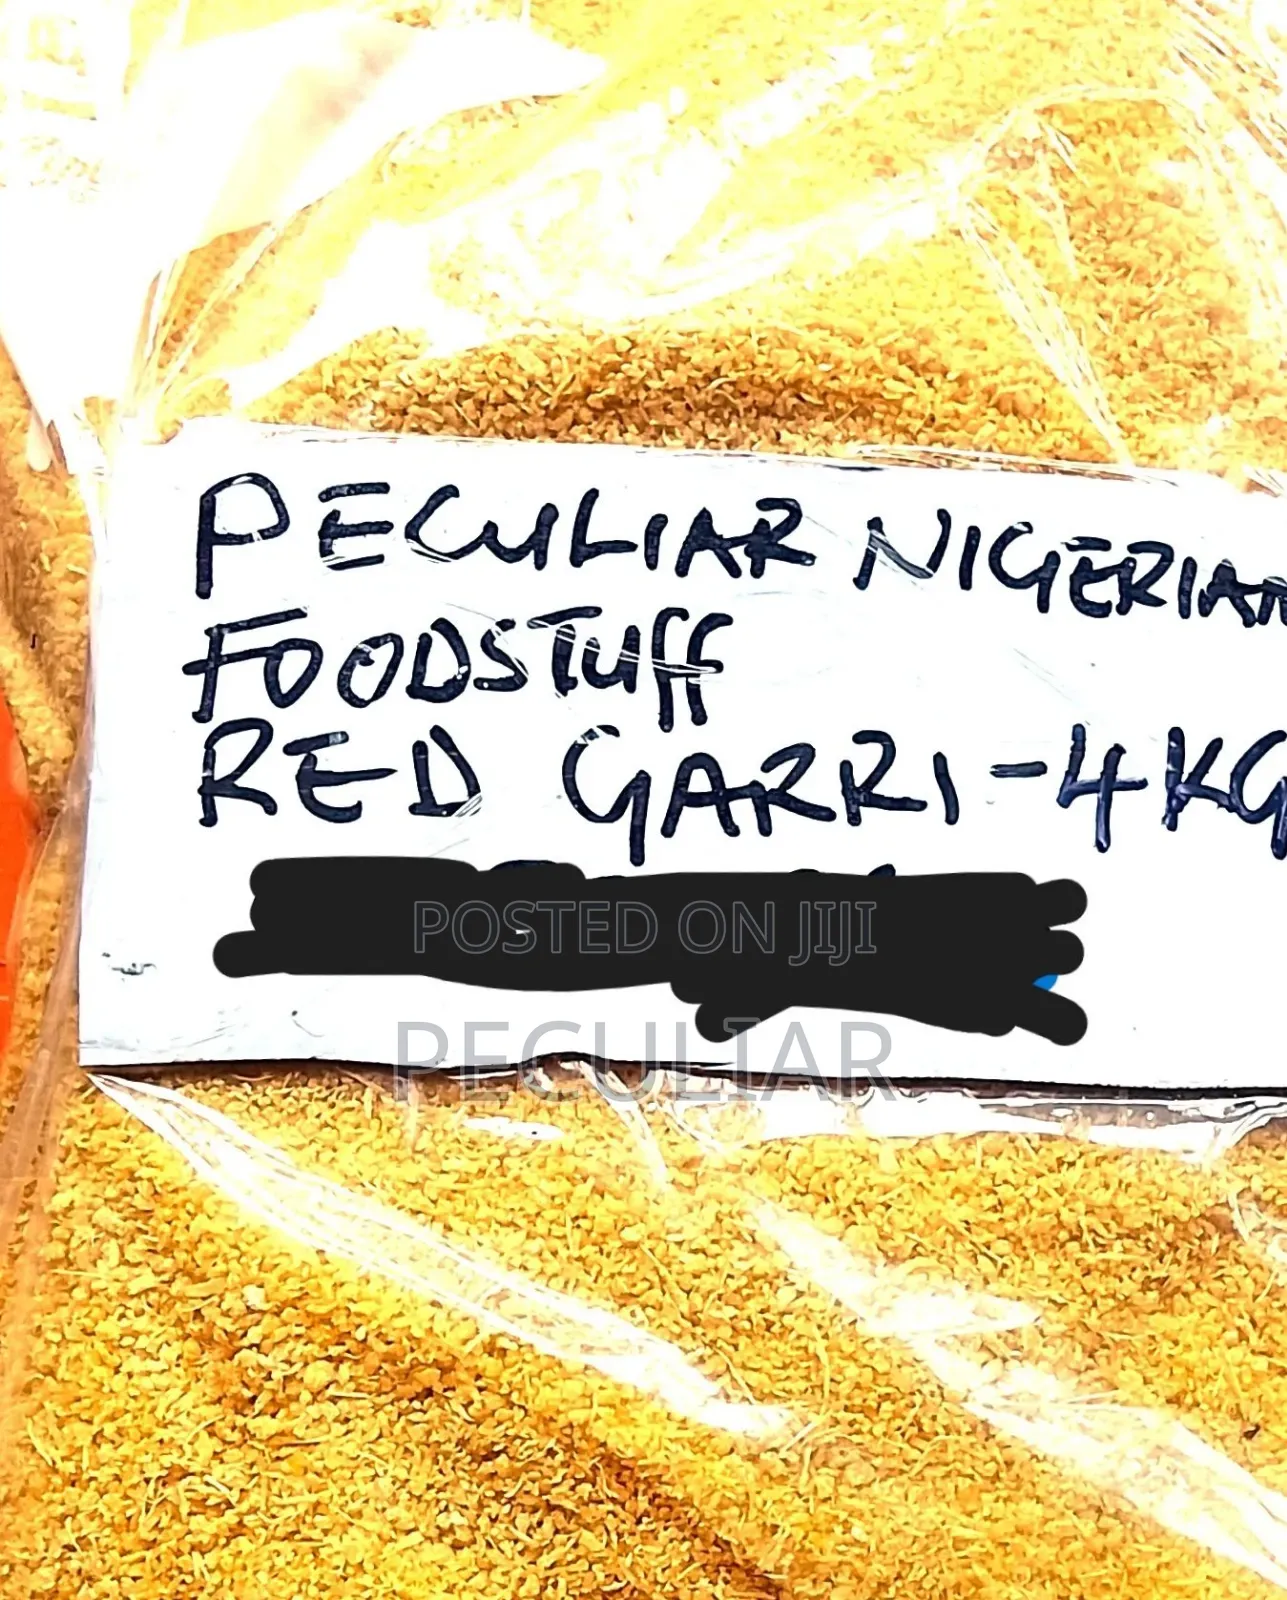 PECULIAR NIGERIAN
FOODSTUFF
RED GARRI-4KG
POSTED ON JIJI
PECULIAR